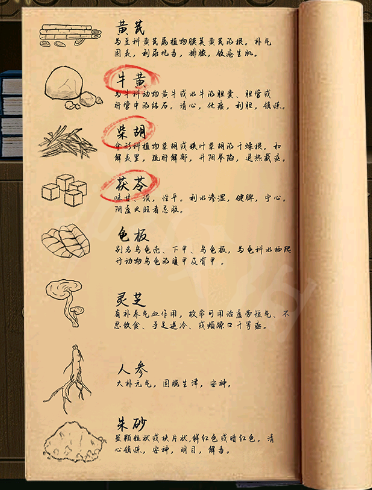 黄芪
为豆科黄芪属植物膜荚黄芪的根，补气
固表，利尿托毒，排脓，敛疮生肌。
牛黄
为牛科动物黄牛或水牛的胆囊，胆管或
肝管中的结石，清心，化痰，利胆，镇惊。
柴胡
伞形科植物柴胡或狭叶柴胡的干燥根，和
解表里，疏肝解郁，升阳举陷，退热截疟。
茯苓
味甘、淡，性平，利水渗湿，健脾，宁心，
阴虚火旺者忌服。
龟板
别名乌龟壳、下甲、乌龟板，为龟科水栖爬
行动物乌龟的腹甲及背甲。
灵芝
有补养气血作用，故常可用治虚劳短气、不
思饮食、手足逆冷、或烦躁口干等症。
人参
大补元气，固脱生津，安神。
朱砂
呈颗粒状或块片状，鲜红色或暗红色，清
心镇惊，安神，明目，解毒。